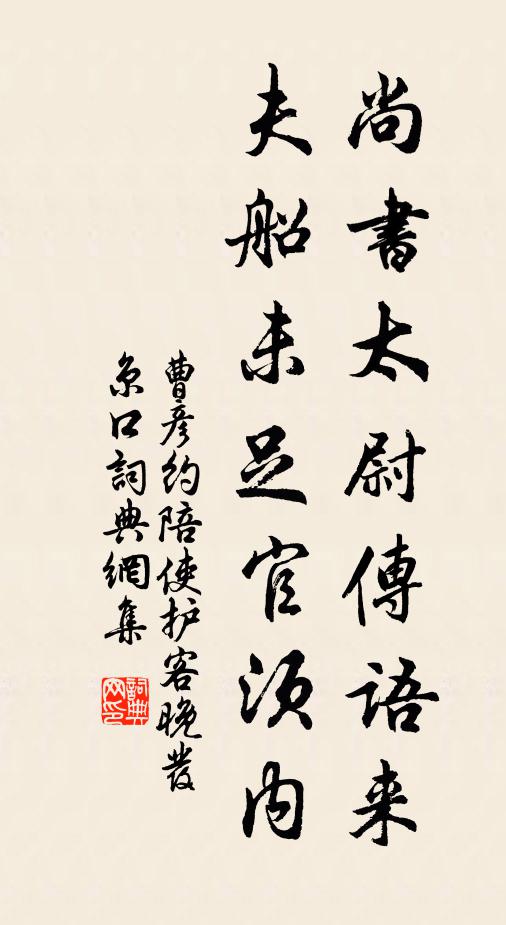 尚書太尉傳語来
夫船未足官須内
曹彦約陪使护客晚發
京口詞典網集
詞典
网印